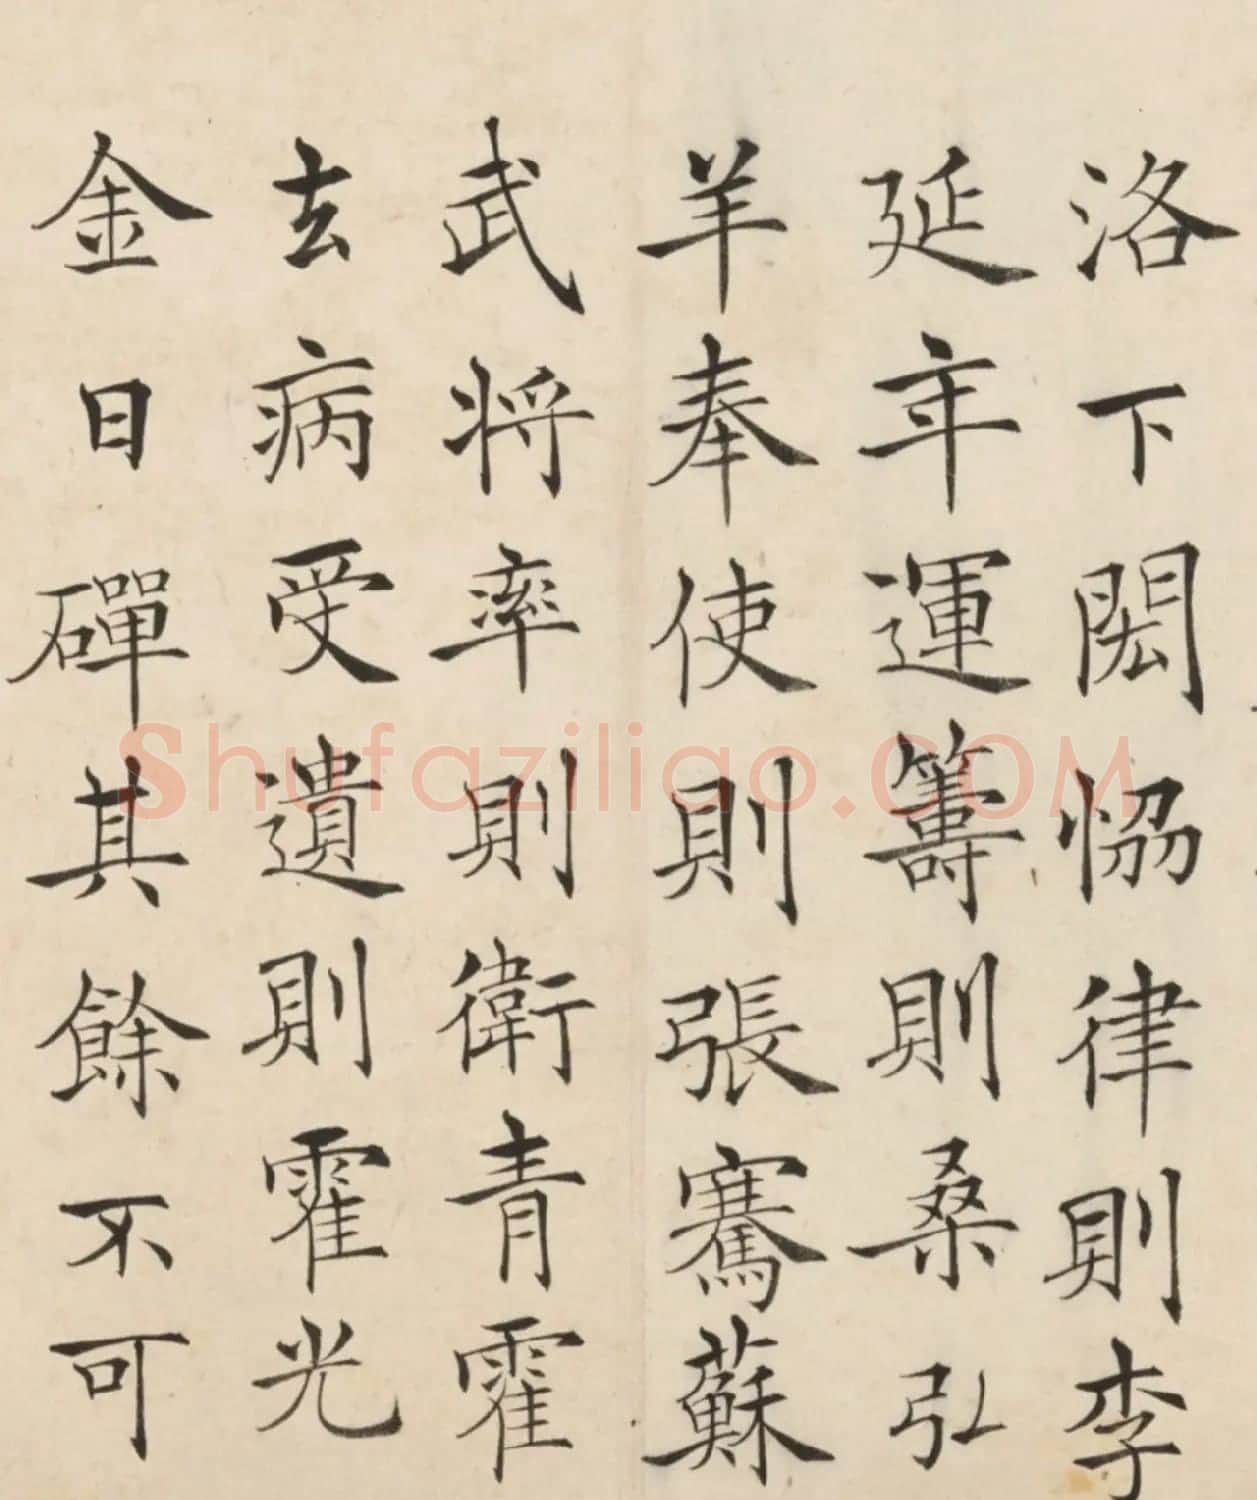 洛下閎恊律則李
延年運籌則桑弘
羊奉使則張騫蘇
武将率則衛青霍
去病受遺則霍光
金日磾其餘不可
Shufaziliao.COM